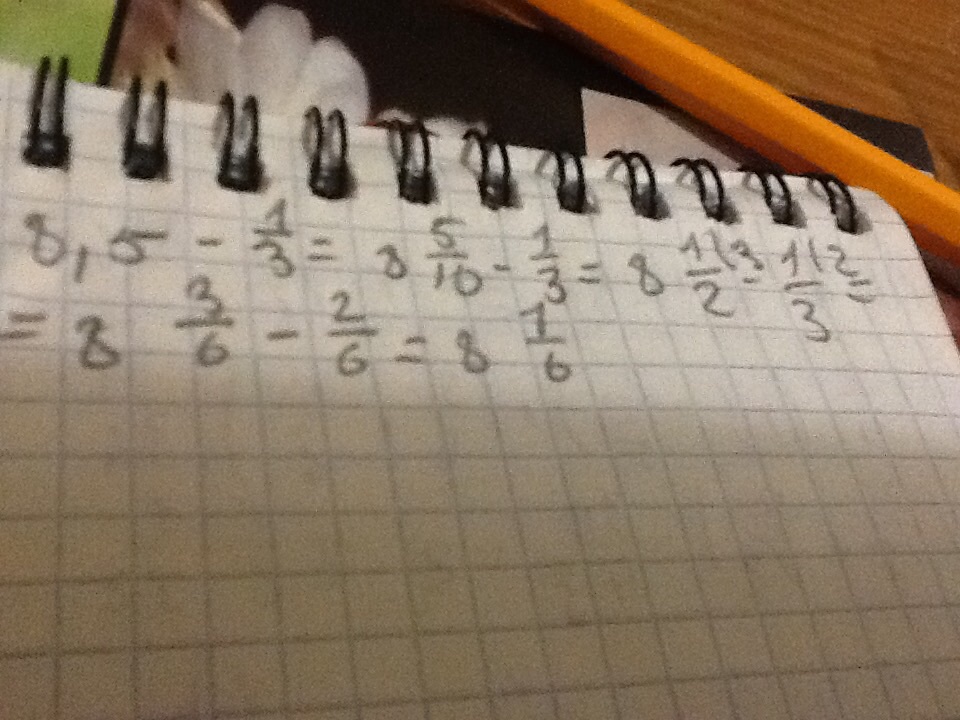 8,5 - 1/3 = 8 5/10 - 1/3 = 8 1\3/2 - 1\2/3 =
= 8 3/6 - 2/6 = 8 1/6